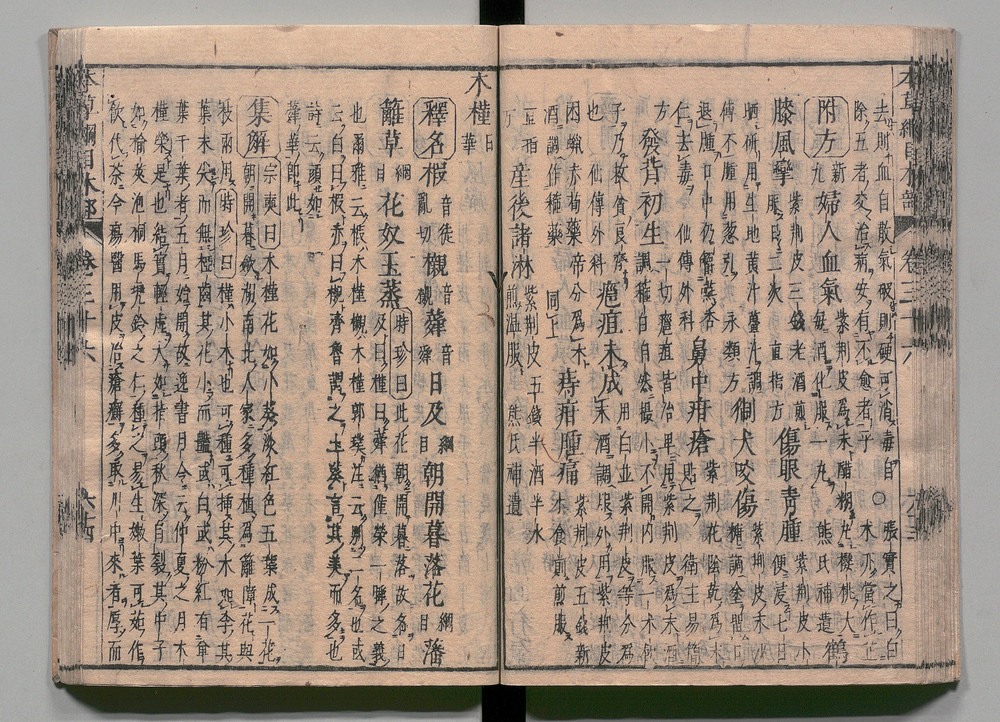 本草綱目木部 卷三十六 六十三
去則血自散氣破則硬可消毒自
除五者交治病安有不愈者乎
附方 新九 婦人血氣 紫荆皮爲末醋糊丸櫻桃大
毎酒化服一丸 熊氏補遺 鶴
膝風攣 紫荆皮三錢老酒煎
服日二次 直指方 傷眼青腫 紫荆皮小
便浸七日
晒研用生地黄汁薑汁調
傅不腫用葱汁 永類方 猘犬咬傷 紫荆皮末
沙糖調塗留口
退腫口中仍嚼
杏仁去毒 仙傳外科 鼻中疳瘡 紫荆花陰乾爲末
貼之 衛生易簡
方 發背初生 一切癰疽皆治單用紫荆皮爲末酒
調箍住自然撮小不開内服
乃救貧良劑
也 仙傳外科 癰疽未成 用白芷紫荆皮等分爲
末酒調服外用紫荆皮
赤芍藥
酒調作箍藥 同上 痔瘡腫痛 紫荆皮五錢新
水食前煎服
産後諸淋 紫荆皮五錢半酒半水
煎温服 熊氏補遺
木槿 日華
釋名 椵 音徒亂切 櫬 音襯 蕣 音舜 日及 綱目 朝開暮落花 綱目 藩
籬草 綱目 花奴玉蒸 時珍曰此花朝開暮落故名日
及曰槿曰蕣猶僅榮一瞬之義
也爾雅云椵木槿櫬木槿郭璞注云別二名也或
云白曰椵赤曰櫬齊魯謂之王蒸言其美而多也
詩云顔如
蕣華即此
集解 宗奭曰木槿花如小葵淡紅色五葉成一花
朝開暮斂湖南北人家多種植爲籬障花與
枝兩用時珍曰槿小木也可種可插其木如李其
葉末尖而無椏齒其花小而豔或白或粉紅有單
葉千葉者五月始開故逸書月令云仲夏之月木
槿榮是也結實輕虚大如指頭秋深自裂其中子
如榆莢泡桐馬兜鈴之仁種之易生嫩葉可茹作
飲代茶今瘍醫用皮治瘡癬多取川中來者厚而
本草綱目木部 卷三十六 六十四